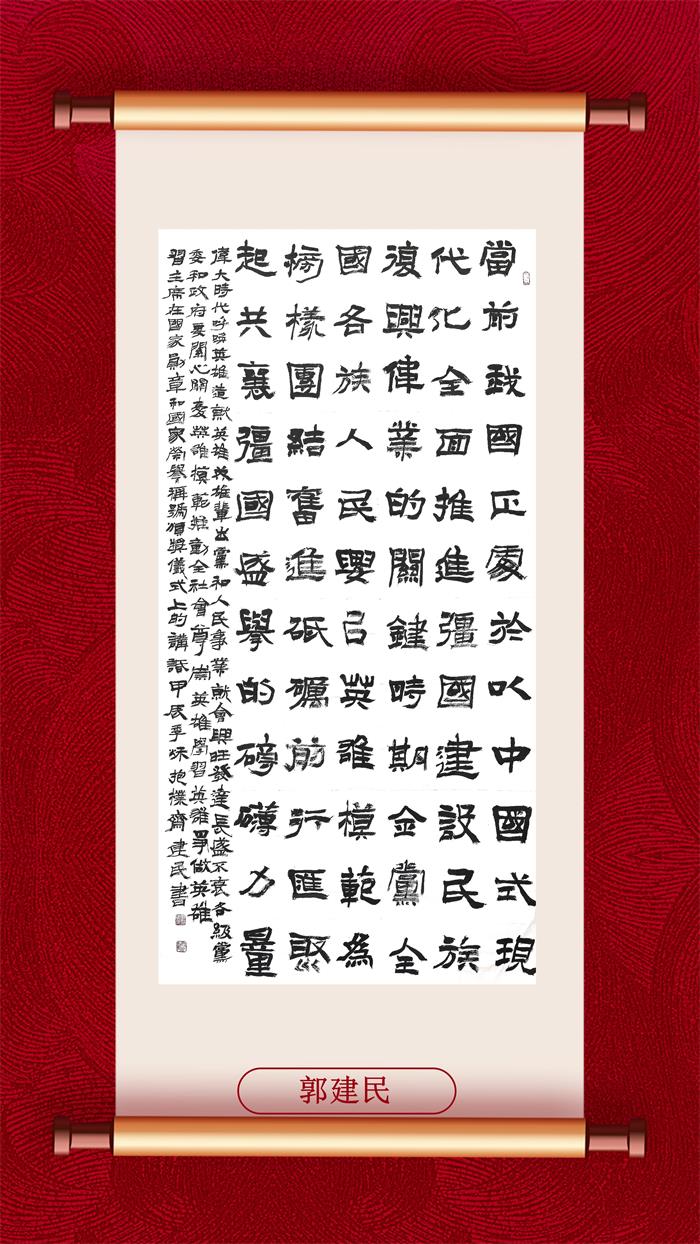 當前我國正處於以中國式現
代化全面推進彊國建設民族
復興偉業的關鍵時期全黨全
國各族人民要以英雄模範為
榜樣團結奮進砥礪前行匯聚
起共襄彊國盛舉的磅礴力量
偉大時代呼喚英雄造就英雄英雄輩出黨和人民事業就會興旺發達長盛不衰各級黨
委和政府要關心關愛英雄模範推動全社會尊崇英雄學習英雄爭做英雄
習主席在國家勳章和國家榮譽稱號頒獎儀式上的講話甲辰季秋抱樸齋建民書
郭建民